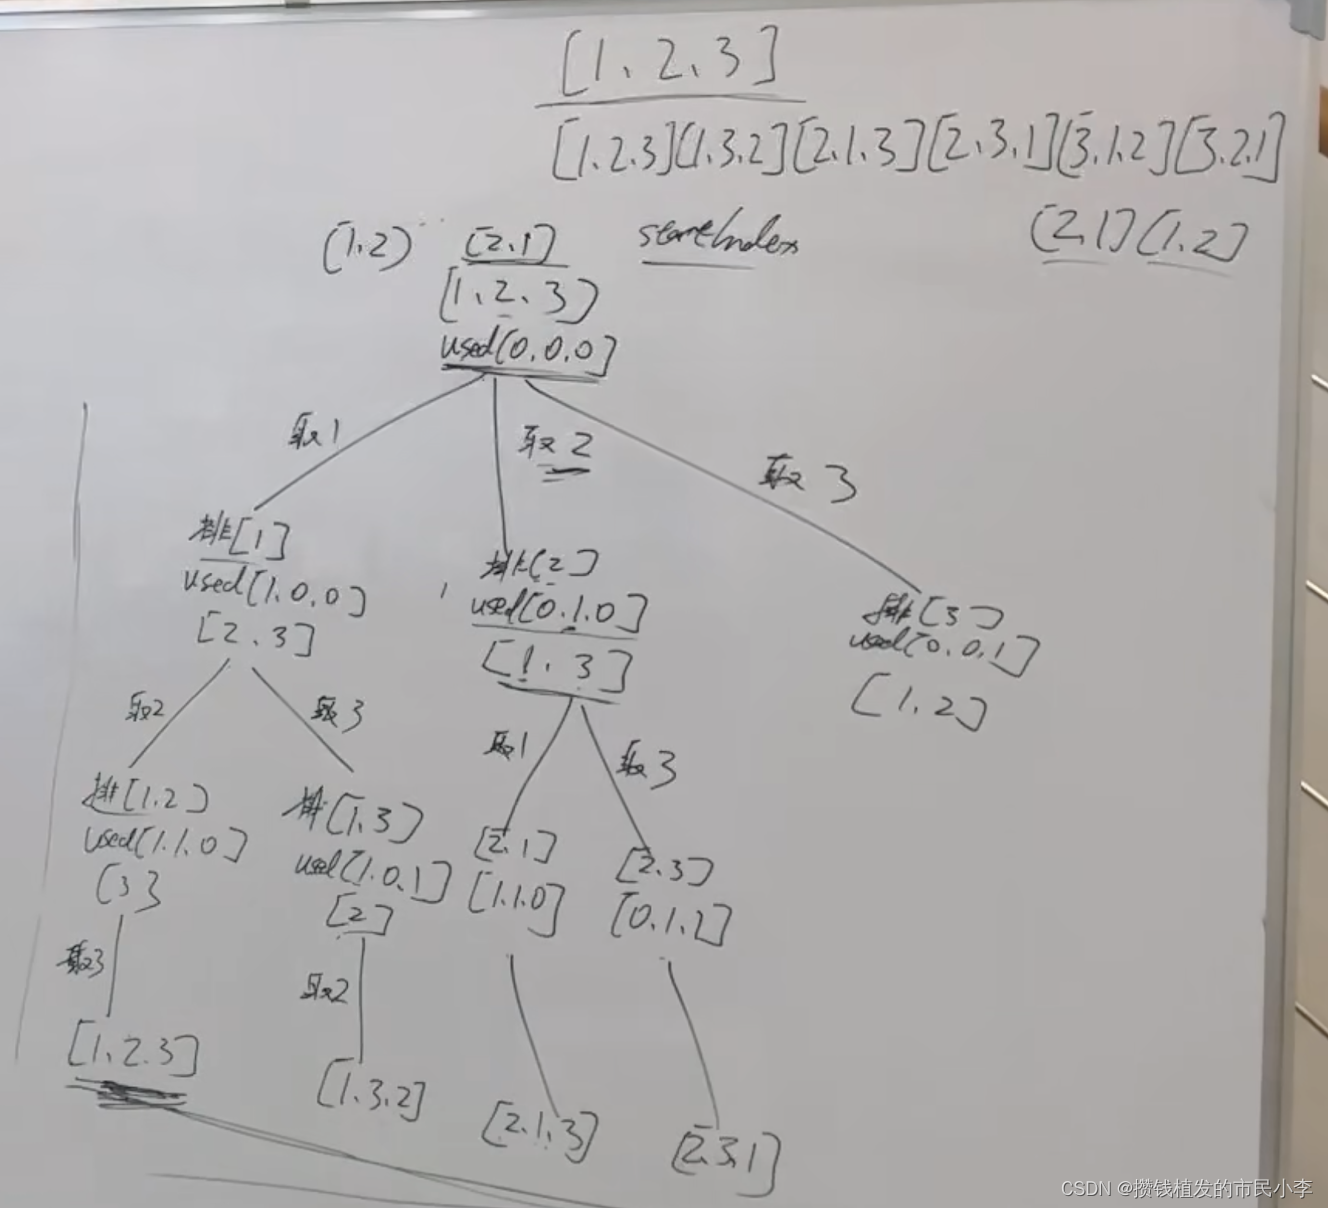 [1、2、3]
[1.2.3][1.3.2][2.1.3][2.3.1][3.1.2][3.2.1]
(1.2) [2.1] startIndex (2.1] [1.2]
[1、2、3]
used[0.0.0]
取1 取2 取3
排[1]
used[1.0.0]
[2.3]
排[2]
used[0.1.0]
[1.3]
排[3]
used[0.0.1]
[1.2]
取2 取3 取1 取3
排[1.2]
used[1.1.0]
[3]
排[1.3]
used[1.0.1]
[2]
[2.1]
[1.1.0]
[2.3]
[0.1.1]
取3 取2
[1.2.3] [1.3.2] [2.1.3] [2.3.1]
CSDN @攒钱植发的市民小李